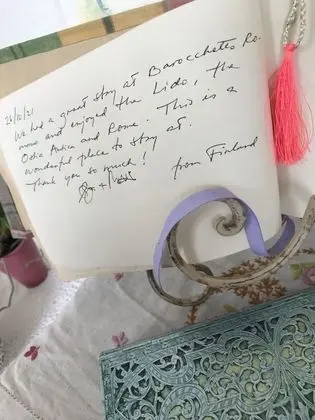 26/10/21
We had a great stay at Barocchetto Ro.
mano and enjoyed the Lido, the
Ostia Antica and Rome. This is a
wonderful place to stay at.
Thank you so much!
from Finland